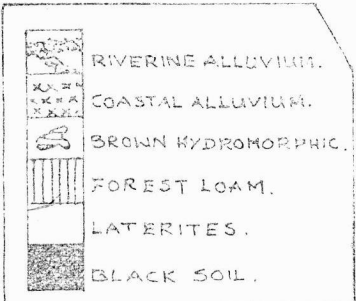 RIVERINE ALLUVIUM.
COASTAL ALLUVIUM.
BROWN HYDROMORPHIC.
FOREST LOAM.
LATERITES.
BLACK SOIL.